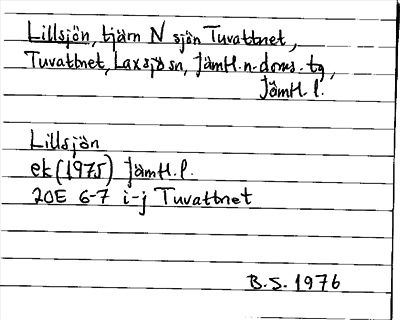 Lillsjön, tjärn N sjön Tuvattnet,
Tuvattnet, Laxsjö sn, Jämtl. n. doms. tg,
Jämtl. l.
Lillsjön
ek (1975) Jämtl. l.
20E 6-7 i-j Tuvattnet
B.S. 1976